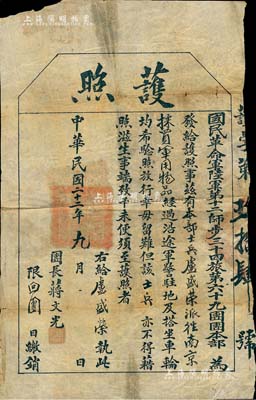 護照
國民革命軍陸軍第十二師步三十四旅第六十九團團本部 為
發給護照事茲有本部士兵盧盛榮派往南京
採買軍用物品經過沿途軍警駐地及搭坐車輪
均希驗照放行幸毋留難但該士兵亦不得藉
照滋生事端致干未便須至護照者
右給盧盛榮執此
中華民國二十三年九月 日
團長蔣文光
限回團 日繳銷
護字第 號